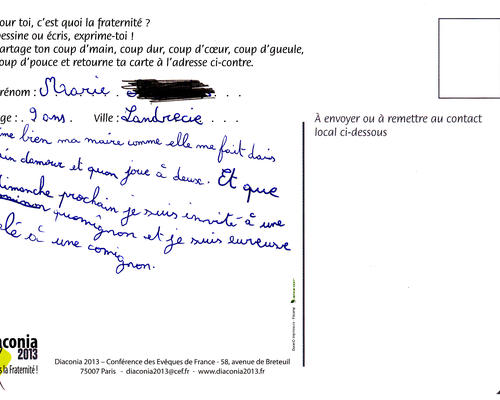 our toi, c'est quoi la fraternité ?
essine ou écris, exprime-toi !
artage ton coup d'main, coup dur, coup d'cœur, coup d'gueule,
oup d'pouce et retourne ta carte à l'adresse ci-contre.
rénom : Marie
ge : 9 ans. Ville : Landrecie
me bien ma maire comme elle me fait dais
ain d'amour et quon joue à deux. Et que
dimanche prochain je suis invité à une
quomignon et je suis eureuse
élé à une comignon.
À envoyer ou à remettre au contact
local ci-dessous
aconia
2013
s la Fraternité !
Diaconia 2013 – Conférence des Evêques de France - 58, avenue de Breteuil
75007 Paris - diaconia2013@cef.fr - www.diaconia2013.fr